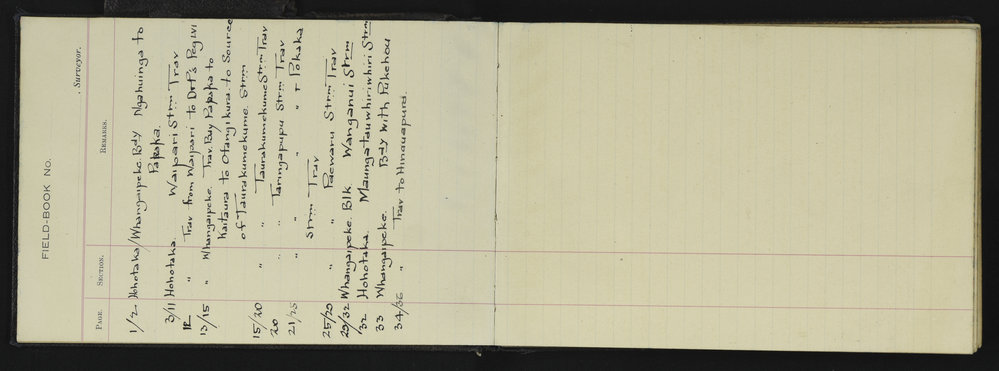 FIELD-BOOK No.
, Surveyor.
PAGE. SECTION. REMARKS.
1/2 Hohotaka/Whangaipeke Bdy Ngahuinga to
Papapa.
3/11 Hohotaka. Waipari Strm Trav
12 " Trav from Waipari to Peg LVI
13/15 " Whangaipeke. Trav. Bdy Papapa to
Kaitaura to Otangikura. to Source
of Taurakumekume. Strm
15/20 " " Taurakumekume Strm Trav
20 " " Taringapupu Strm Trav
21/25 " " " " Pokaka
Strm Trav
25/29 " " Paewaru Strm Trav
29/32 Whangaipeke. Blk Wanganui Strm
/32 Hohotaka. Maungatauwhiriwhiri Strm
33 Whangaipeke. Bdy with Pukehou
34/36 " Trav to Hinauapurei.